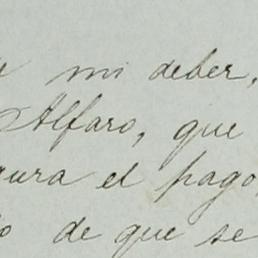 mi deber,
Alfaro, que
el pago,
de que se